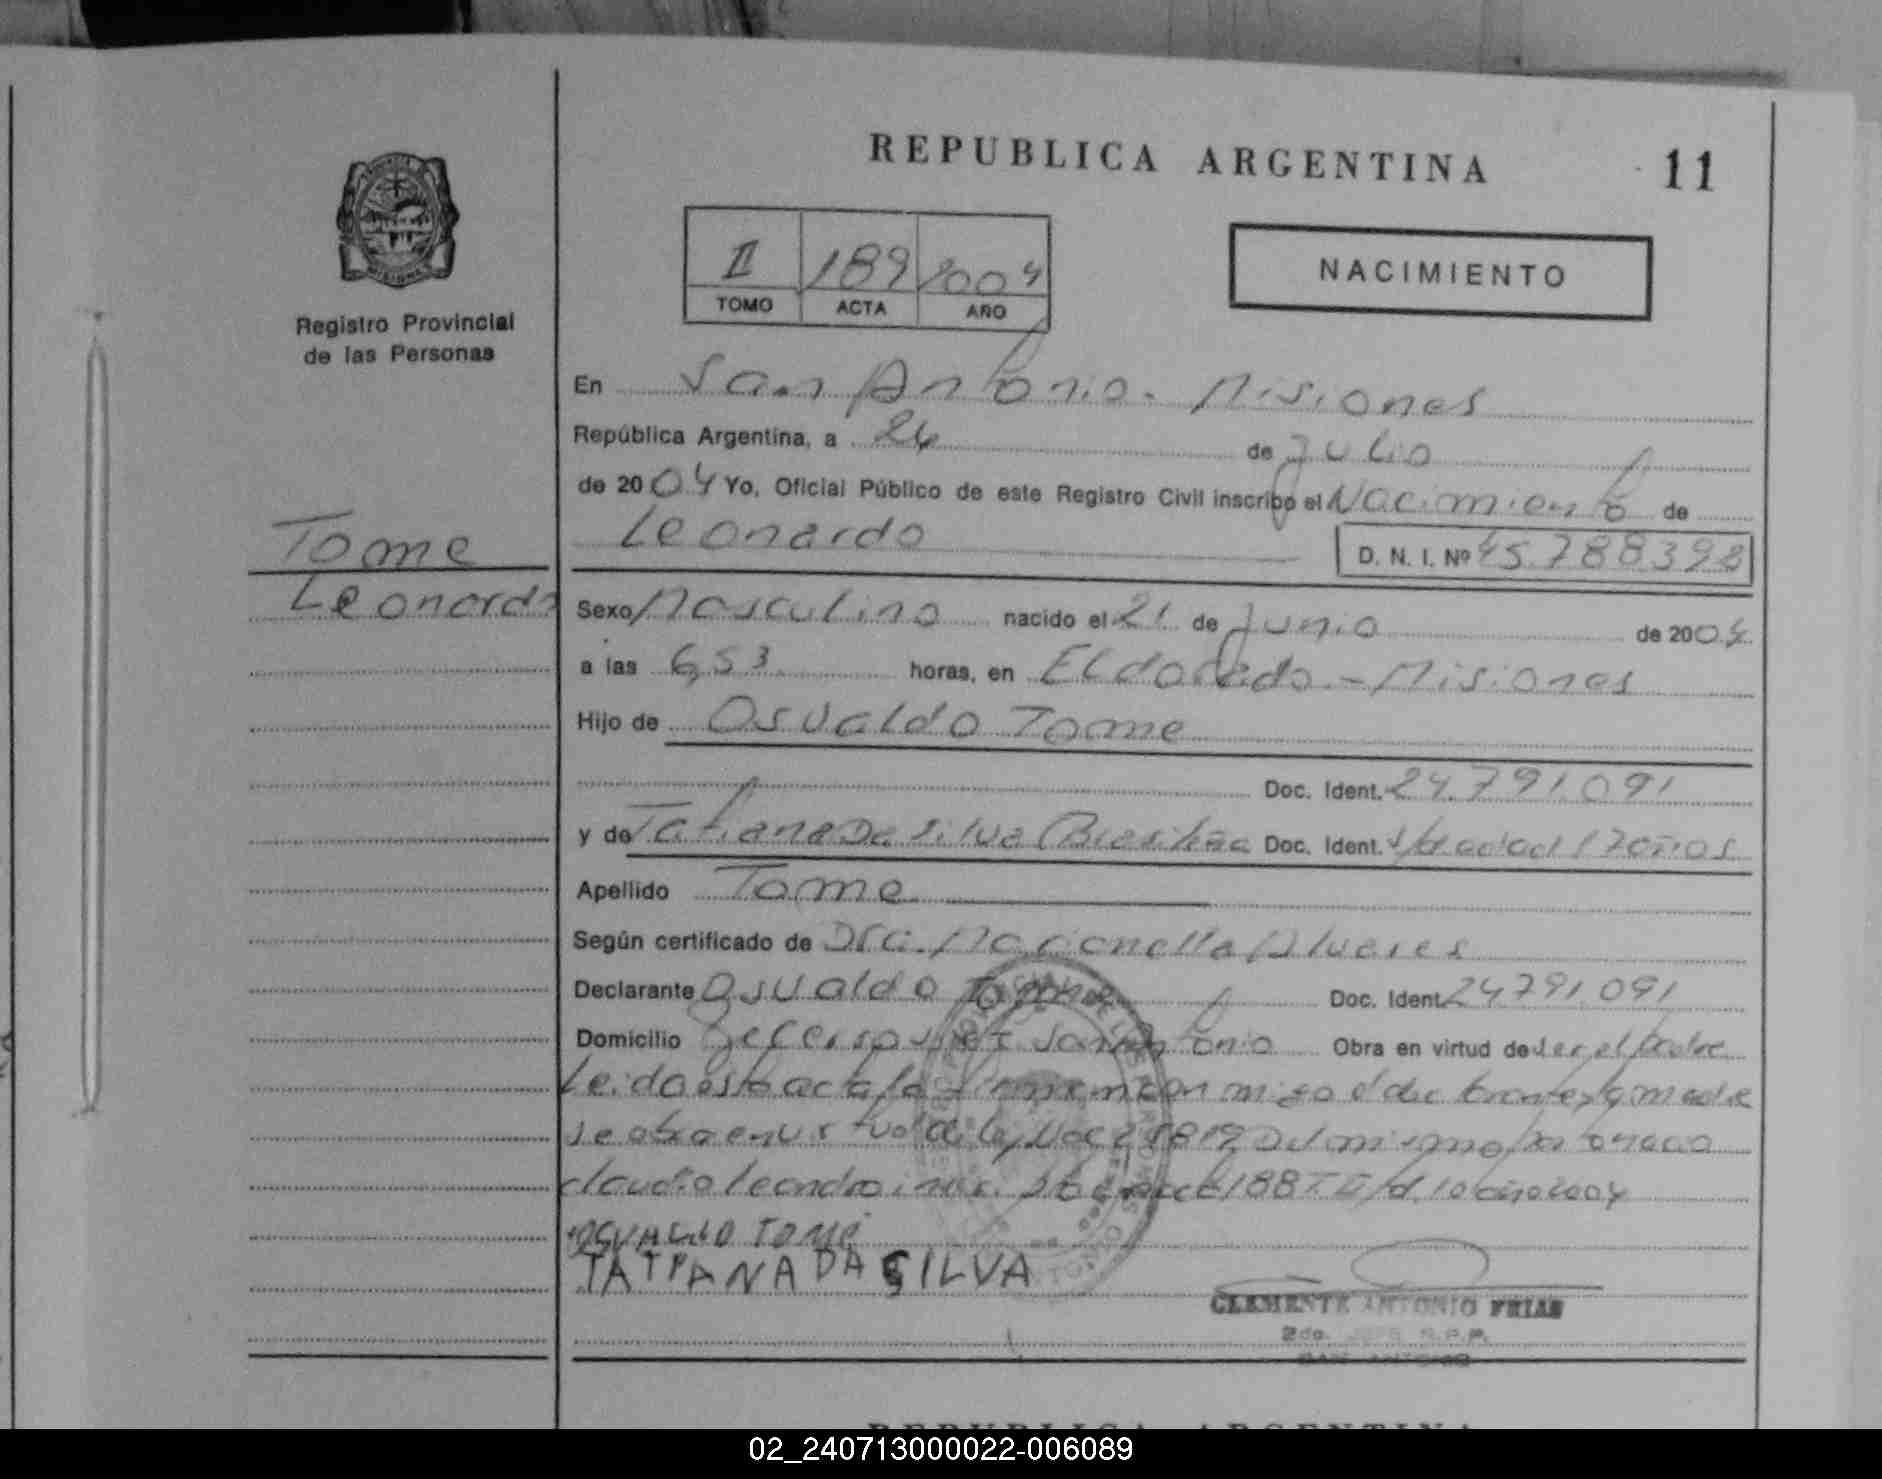 REPUBLICA ARGENTINA
11
II 189 2004
TOMO ACTA AÑO
NACIMIENTO
Registro Provincial
de las Personas
Tome
Leonardo
En San Antonio. Misiones
República Argentina, a 26 de Julio
de 2004 Yo, Oficial Público de este Registro Civil inscribo el Nacimiento de
Leonardo
D. N. I. Nº 45.788.398
Sexo Masculino nacido el 21 de Junio de 2004
a las 6,53 horas, en Eldorado - Misiones
Hijo de Osvaldo Tome
Doc. Ident. 24.791.091
y de Tatiana Da Silva Doc. Ident. edad 17 años
Apellido Tome
Según certificado de Dra. Marianella Alvares
Declarante Osvaldo Tome Doc. Ident. 24.791.091
Domicilio San Antonio Obra en virtud de ser el padre
Leida esta acta la firman con migo el declarante y la madre
se obra en virtud de ley Nac 25819 Del mismo parto nacio
claudio leandro acta 188 T II año 2004
OSVALDO TOME
TATIANA DA SILVA
CLEMENTE ANTONIO FRIAS
2do. JEFE R.P.P.
SAN ANTONIO
REPUBLICA ARGENTINA
02_240713000022-006089